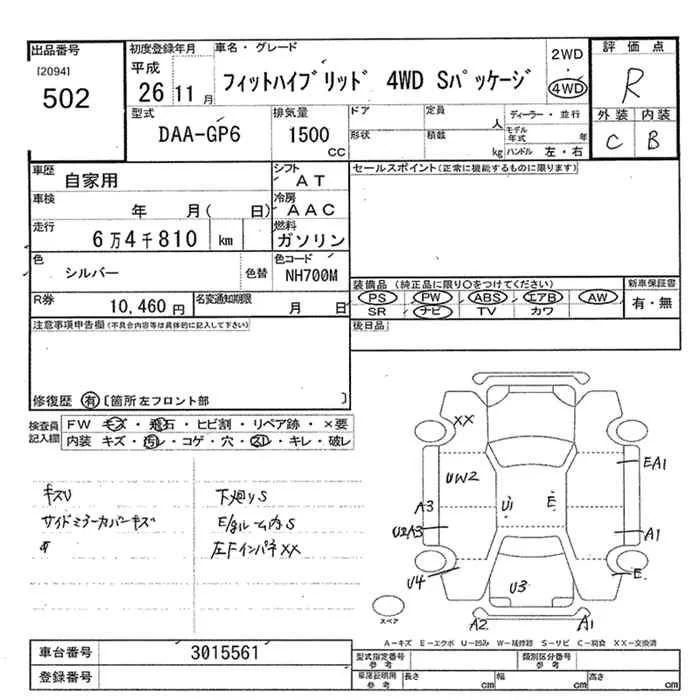 出品番号
[2094]
502
初度登録年月
平成
26 11月
車名・グレード
フィットハイブリッド 4WD Sパッケージ
2WD
・
4WD
評価点
R
外装 内装
C B
型式
DAA-GP6
排気量
1500
CC
ドア
定員
人
形状
積載
kg
ディーラー・並行
モデル年式 年
ハンドル 左・右
車歴
自家用
シフト
AT
セールスポイント(正常に機能するものに限ります)
車検
年 月( 日)
冷房
AAC
走行
6万4千810 km
燃料
ガソリン
色
シルバー
色替
色コード
NH700M
装備品 (純正品に限り○をつけてください)
PS PW ABS エアB AW
SR ナビ TV カワ
新車保証書
有・無
R券
10,460円
名変通知期限
月 日
後日品
注意事項申告欄(不具合内容等は具体的に記入して下さい)
修復歴 有 〔箇所 左フロント部 〕
検査員記入欄
FW キズ・飛石・ヒビ割・リペア跡・×要
内装 キズ・汚レ・コゲ・穴・スレ・キレ・破レ
キズU
下廻りS
サイドミラーカバーキズ
E/ルーム内S
左FインパネXX
XX
UW2
EA1
A3
U1
E
U2A3
A1
U4
U3
E
A2
A1
スペア
A-キズ E-エクボ U-凹み W-補修跡 S-サビ C-腐食 XX-交換済
車台番号
3015561
登録番号
型式指定番号
参考
類別区分番号
参考
車庫証明用
参考
長さ
cm
幅
cm
高さ
cm